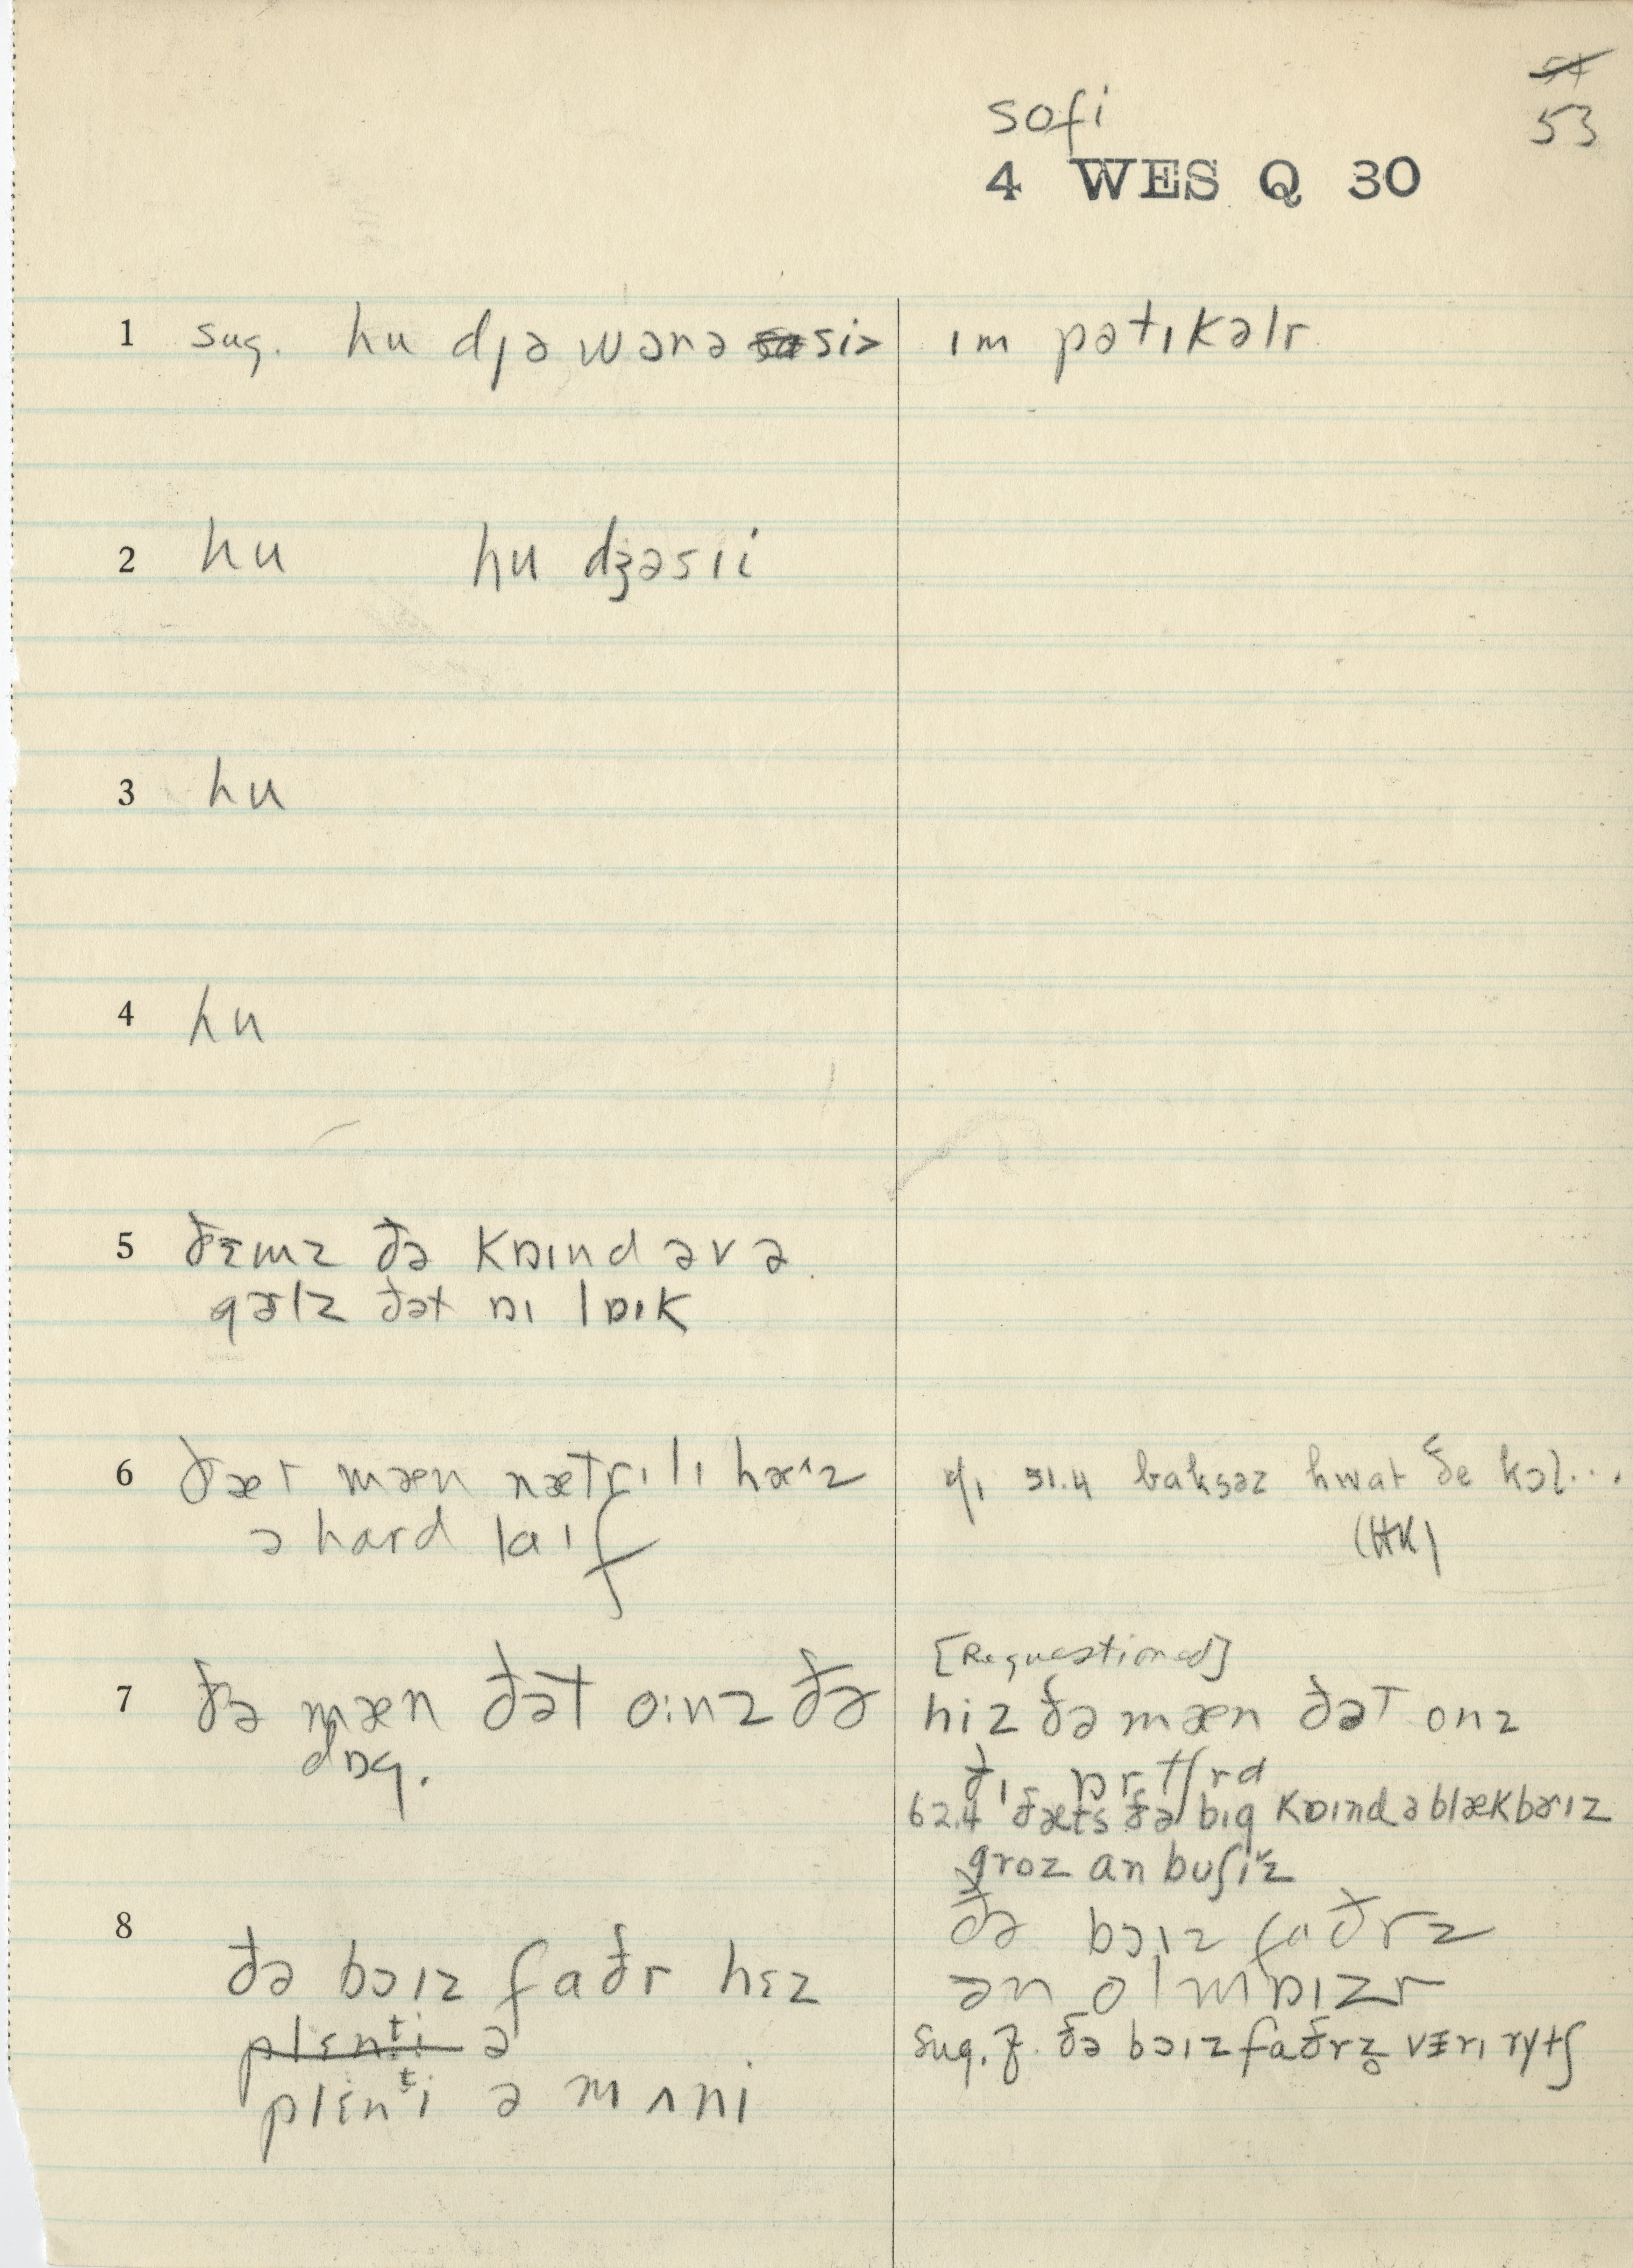 54
53
sofi
4 WES Q 30
1 sug. hu dɟə wɔnə sə siə ɪm pətɪkəlr
2 hu hu dʒəsɪi
3 hu
4 hu
5 ðɛmz ðə kɒɪnd əv ə
gəlz ðət ɒɪ lɒɪk
6 ðæt mæn nætrɪlɪ hæz
ə hard laɪf
51.4 hwat ðe kɔl...
(HK)
7 ðə mæn ðət o:nz ðə
dɒg.
[Requestioned]
hiz ðə mæn ðət onz
ðɪ ɒrtʃrd
62.4 ðæts ðə big kɒɪnd ə blækbərɪz
groz an buʃɪz
8 ðə bɔɪz faðr hɛz
plɛnti ə
plɛnti ə mʌni
ðə bɔɪz faðrz
ən olmɒɪzr
sug. ðə bɔɪz faðrz vɛrɪ rɪtʃ